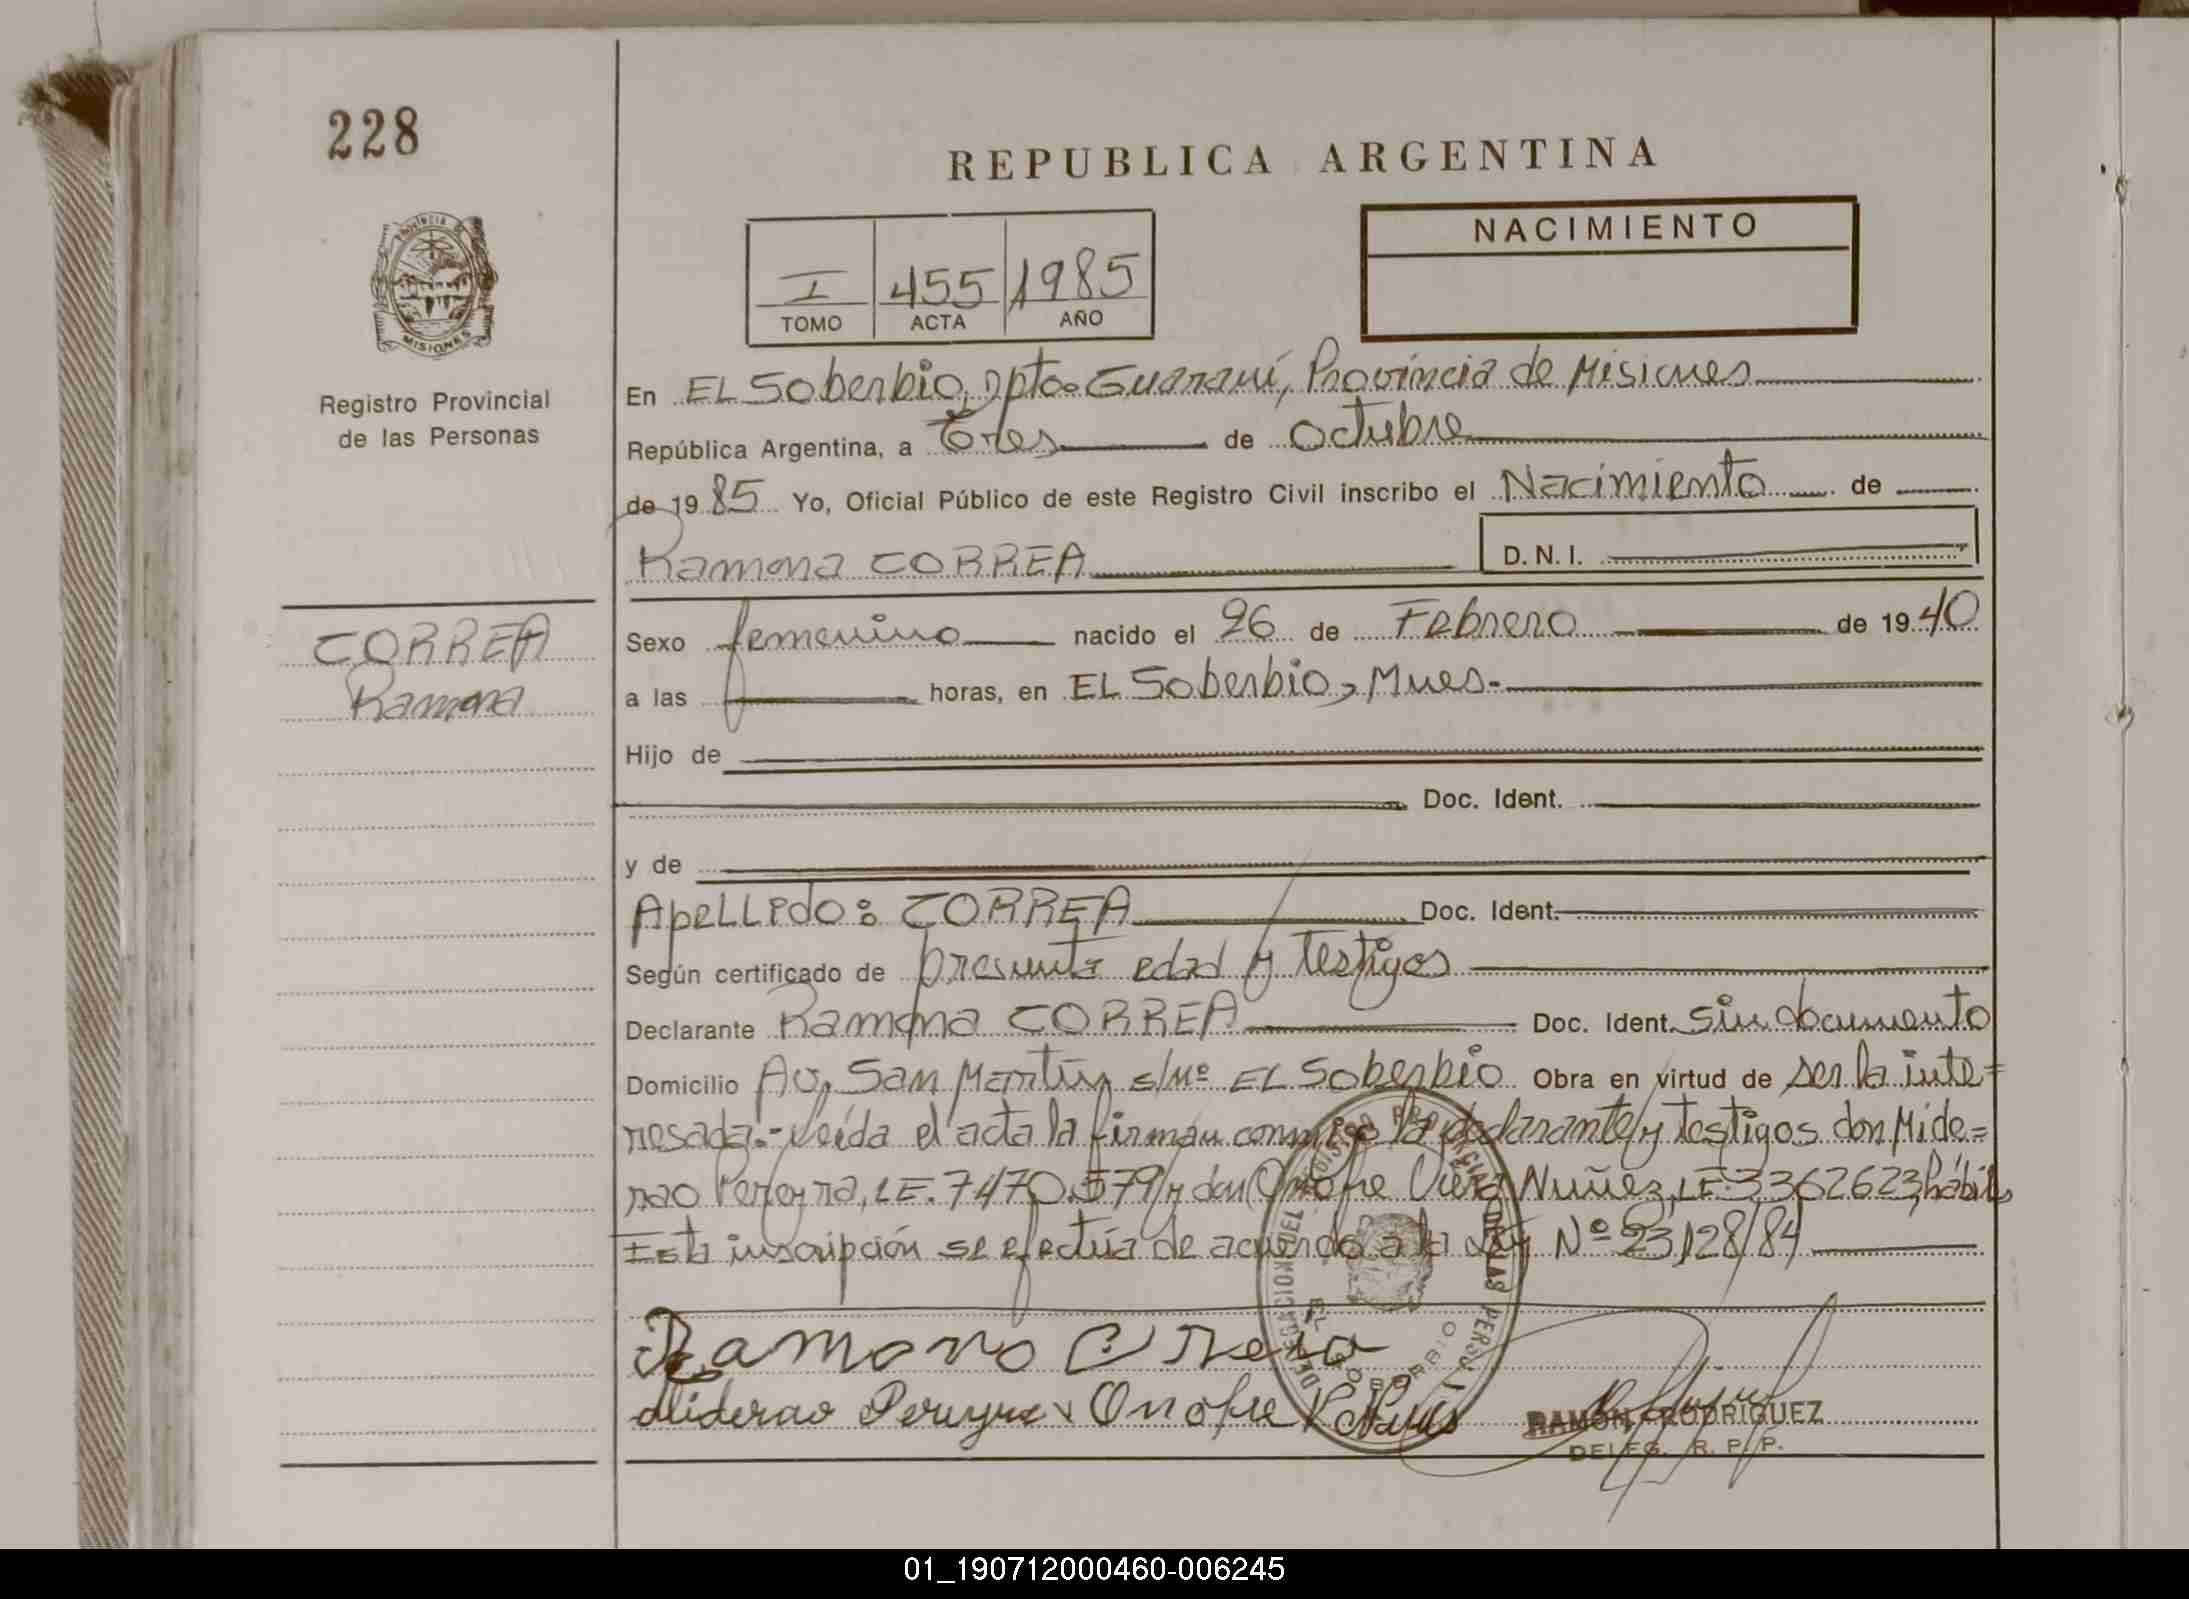 228
REPUBLICA ARGENTINA
NACIMIENTO
I 455 1985
TOMO ACTA AÑO
MISIONES
Registro Provincial
de las Personas
En EL Soberbio, Dpto. Guaraní, Provincia de Misiones
República Argentina, a Tres de octubre
de 1985 Yo, Oficial Público de este Registro Civil inscribo el Nacimiento de
Ramona CORREA D.N.I.
CORREA
Ramona
Sexo femenino nacido el 26 de Febrero de 1940
a las horas, en EL Soberbio, Mnes.-
Hijo de
Doc. Ident.
y de
Apellido: CORREA Doc. Ident.
Según certificado de presunta edad y testigos
Declarante Ramona CORREA Doc. Ident. sin documento
Domicilio Av. San Martín s/nº EL Soberbio Obra en virtud de ser la inte=
resada.- Leída el acta la firman conmigo la declarante y testigos don Mide=
rao Pereyra, LE. 7470.579 y don Onofre Viera Nuñez, LE. 3362623, hábiles
Esta inscripción se efectúa de acuerdo a la Ley Nº 23128/84
DELEGACION DEL REGISTRO PROVINCIAL DE LAS PERSONAS
EL SOBERBIO
Ramona
Miderao Pereyra Onofre V Nuñes
RAMON RODRIGUEZ
DELEG. R. P. P.
01_190712000460-006245